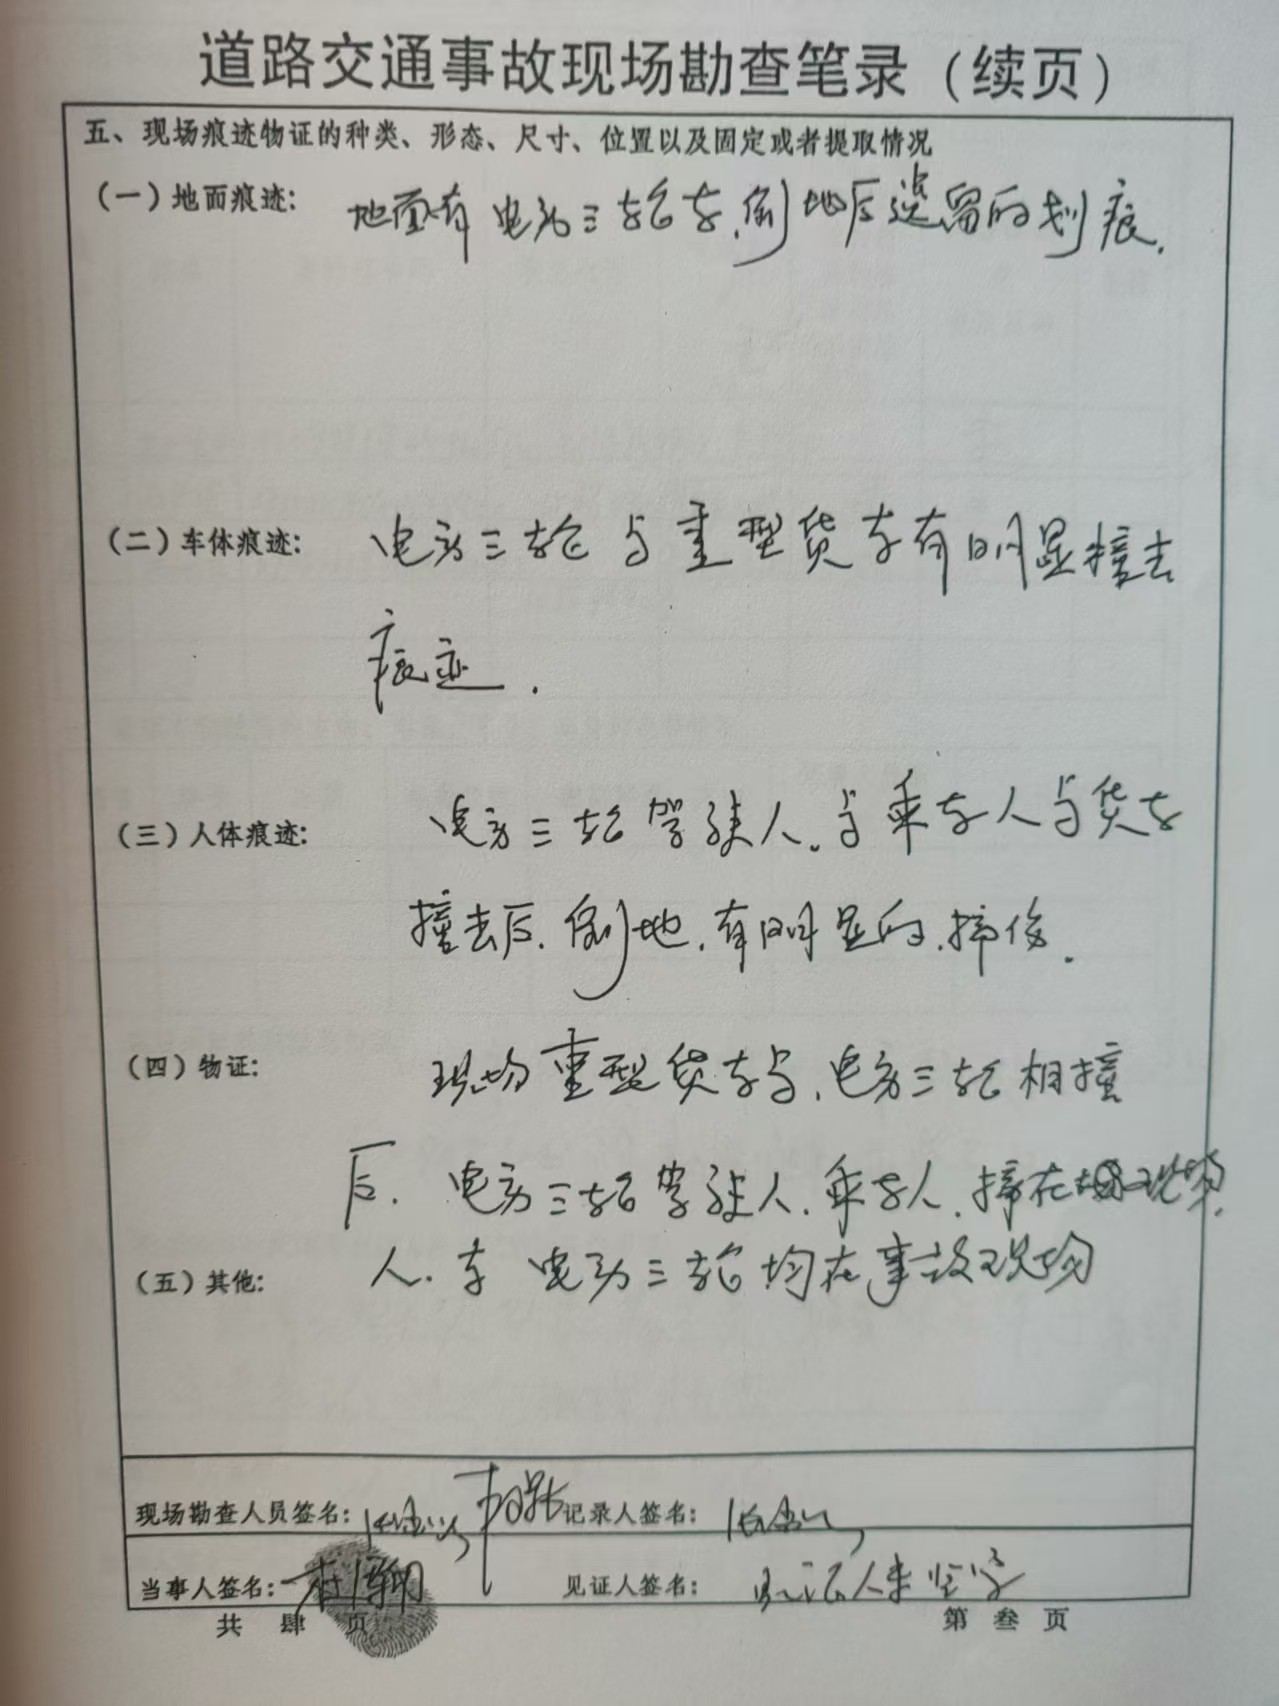 道路交通事故现场勘查笔录（续页）
五、现场痕迹物证的种类、形态、尺寸、位置以及固定或者提取情况
（一）地面痕迹： 地面有电动三轮车.倒地后遗留的划痕.
（二）车体痕迹： 电动三轮与重型货车有明显撞击
痕迹.
（三）人体痕迹： 电动三轮驾驶人.与乘车人与货车
撞击后.倒地.有明显的.摔伤.
（四）物证： 现场重型货车与.电动三轮相撞
后.电动三轮驾驶人.乘车人.摔在现场.
（五）其他： 人.车 电动三轮均在事故现场
现场勘查人员签名： 记录人签名：
当事人签名： 见证人签名： 见证人
共 肆 页 第 叁 页